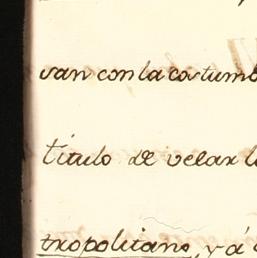 san con la costumb
titulo de velar l
tropolitano, y á